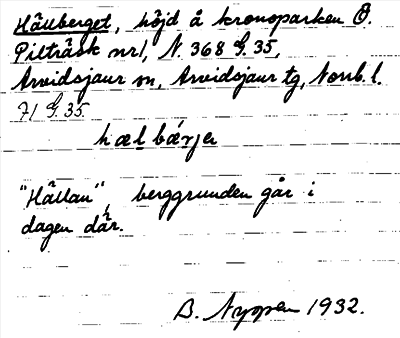 Hällberget, höjd å kronoparken Ö.
Pilträsk nr 1, N. 368 G. 35,
Arvidsjaur sn, Arvidsjaur tg, Norrb. l.
71 G. 35
hælbærjer
"Hällan", berggrunden går i
dagen där.
B. Nyppen 1932.